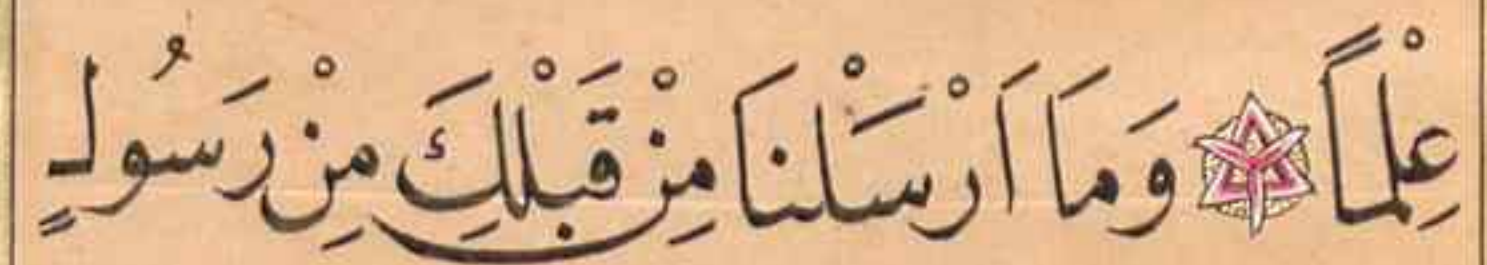 عِلْماً وَمَا اَرْسَلْنَا مِنْ قَبْلِكَ مِنْ رَسُولٍ